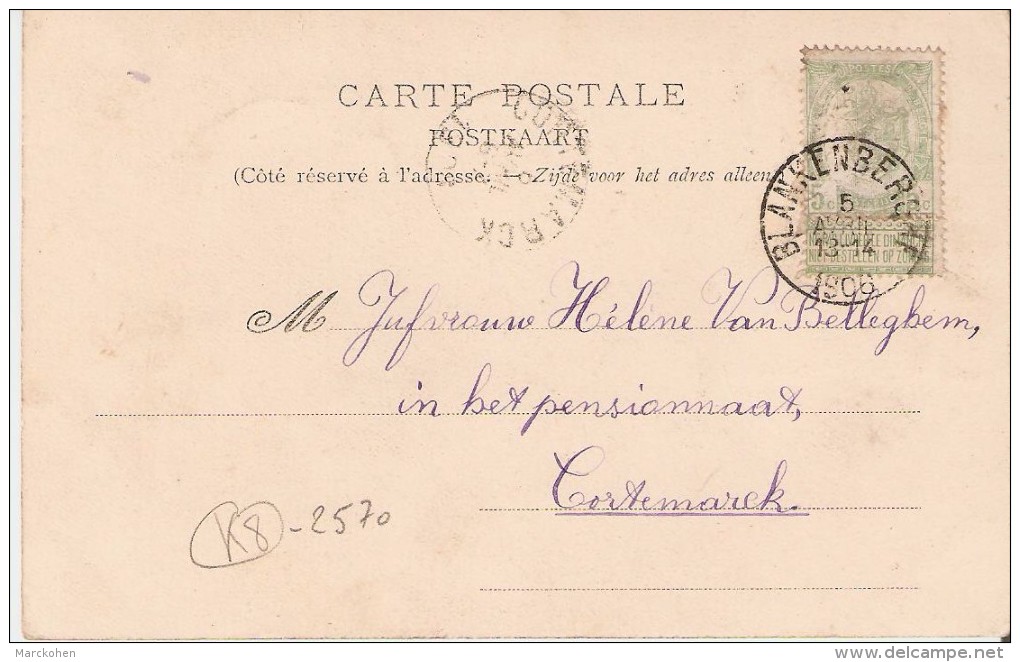 CARTE POSTALE
POSTKAART
(Côté réservé à l'adresse. — Zijde voor het adres alleen
CORTEMARCK
POSTES
5c 5c
NIET BESTELLEN OP ZONDAG
BLANKENBERGHE
5
AVRIL
13-14
1906
M Jufvrouw Hélène Van Belleghem,
in het pensionnaat,
Cortemarck.
K8-2570
Marckohen
delcampe.net